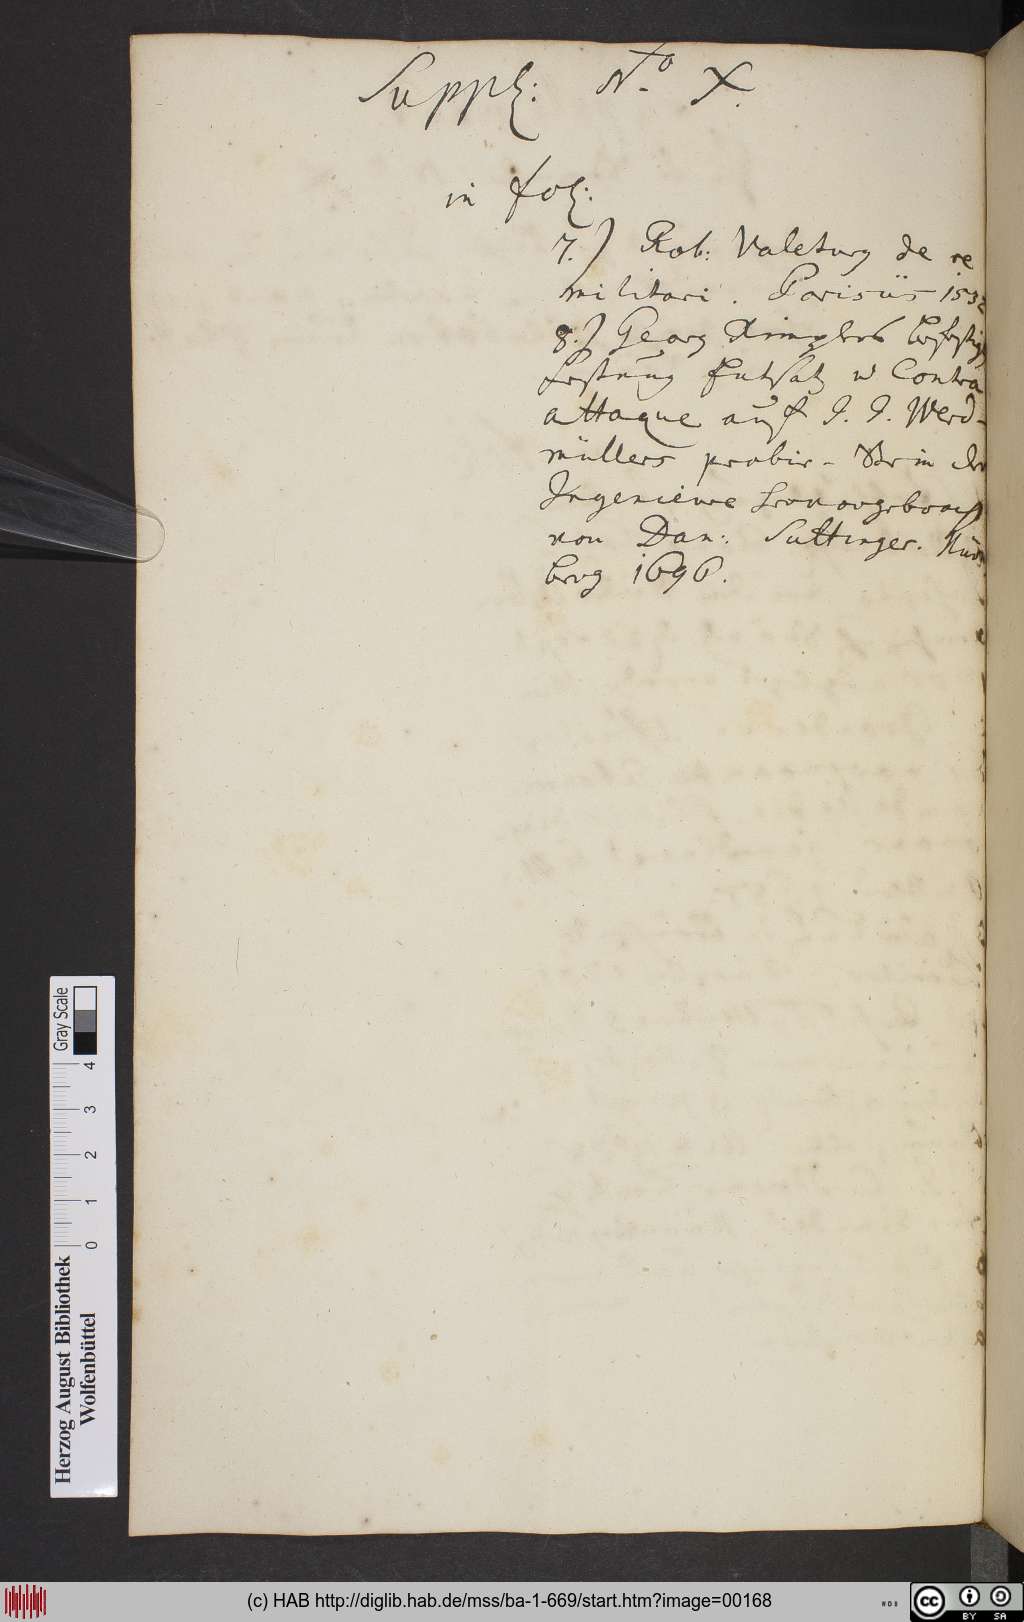 Suppl: No. X.
in fol:
7.) Rob: Valturg de re
militari. Parisiis 1532
8.) Georg Rimplers befestigte
Festung Entsatz u Contra
attaque auf J. J. Werd-
müllers probir- Stein der
Ingenieure hervorgebracht
von Dan: Suttinger. Nürn
berg 1696.
Gray Scale
4
3
2
1
0
Herzog August Bibliothek
Wolfenbüttel
(c) HAB http://diglib.hab.de/mss/ba-1-669/start.htm?image=00168
cc BY SA